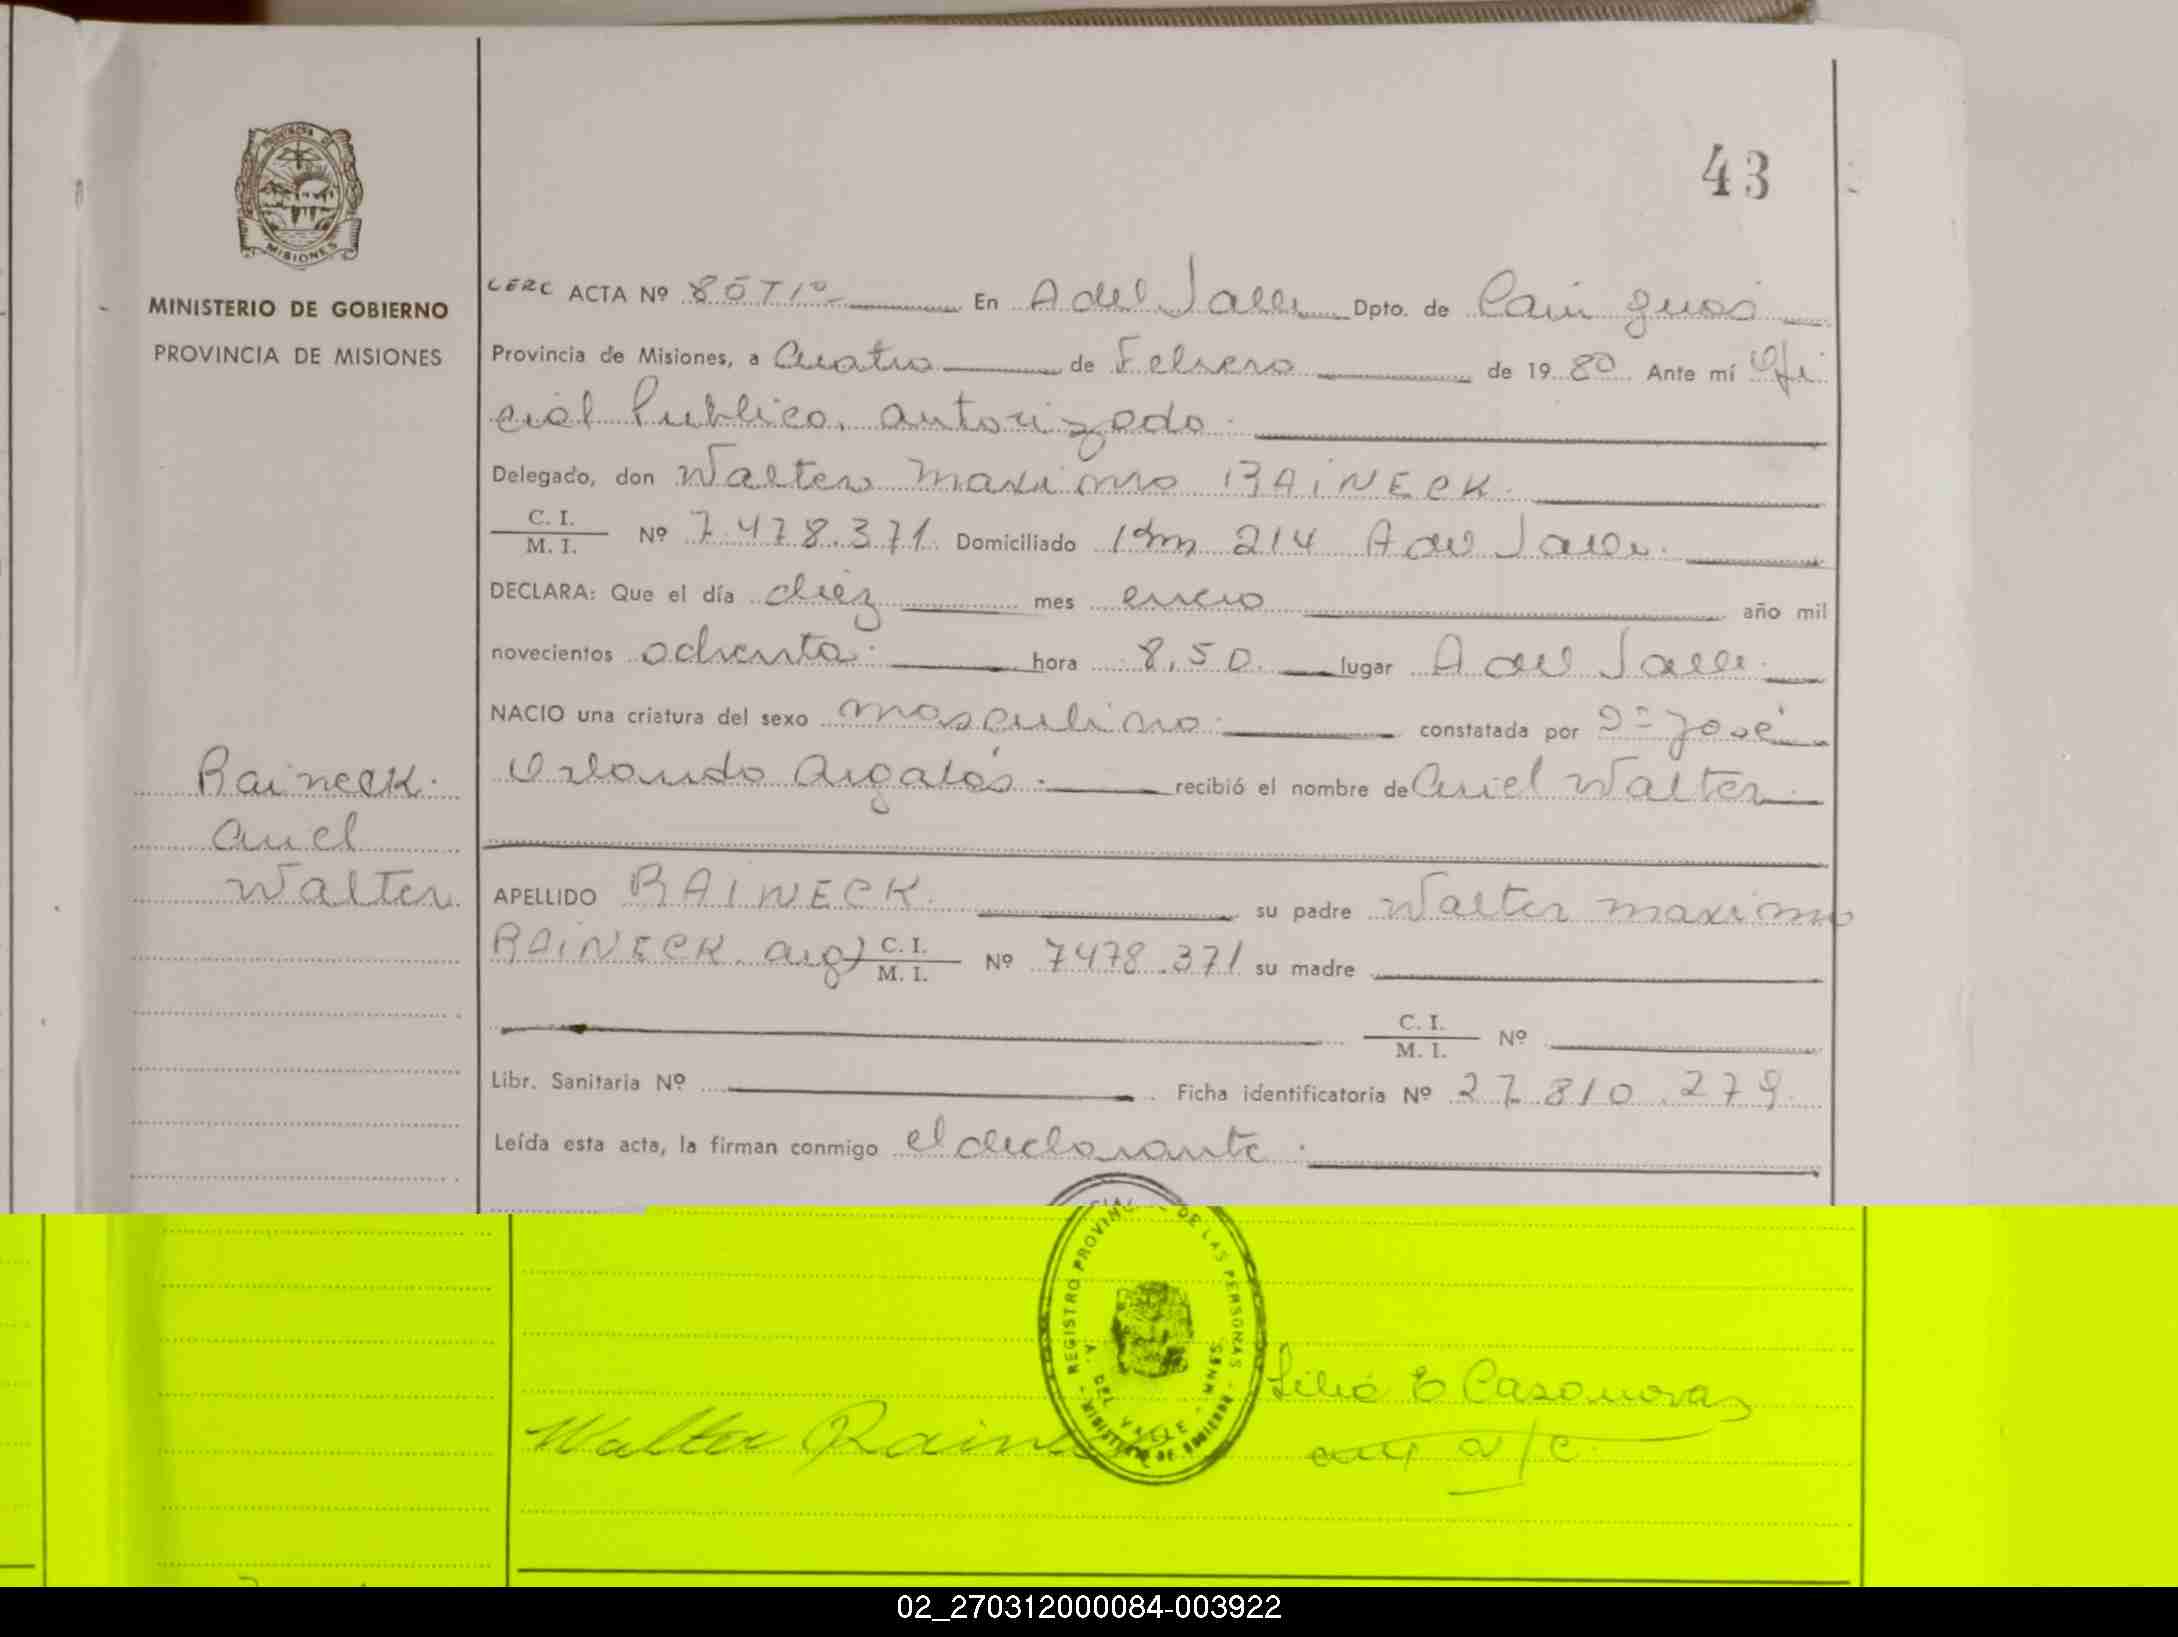 43
PROVINCIA DE
MISIONES
MINISTERIO DE GOBIERNO
PROVINCIA DE MISIONES
ACTA Nº 80 T 1º En A del Valle Dpto. de Cain guas
Provincia de Misiones, a Cuatro de Febrero de 19 80 Ante mí Ofi
cial Publico, autorizado.
Delegado, don Walter Maximo RAINECK.
C. I.
M. I. Nº 7.478.371. Domiciliado Km 214 A del Valle.
DECLARA: Que el día diez mes enero año mil
novecientos ochenta. hora 8,50. lugar A del Valle.
NACIO una criatura del sexo masculino. constatada por Dº José
Orlando Argalás. recibió el nombre de Ariel Walter
Raineck.
Ariel
Walter.
APELLIDO RAINECK. su padre Walter Maximo
RAINECK. arg) C. I.
M. I. Nº 7478.371 su madre
C. I.
M. I. Nº
Libr. Sanitaria Nº Ficha identificatoria Nº 27.810.279.
Leída esta acta, la firman conmigo el declarante.
REGISTRO PROVINCIAL DE LAS PERSONAS
A. DEL VALLE - MNES.
MINISTERIO DE GOBIERNO
Walter Raine
Lilia E Casanova
02_270312000084-003922